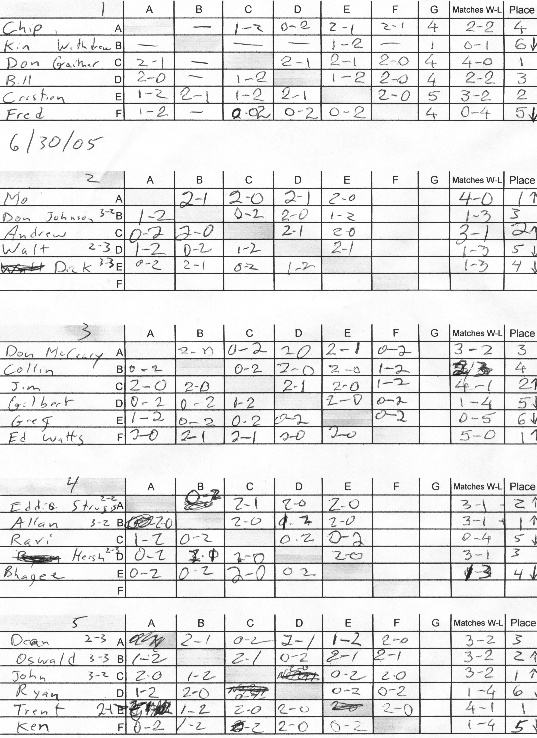 1 A B C D E F G Matches W-L Place
Chip A — 1-2 0-2 2-1 2-1 4 2-2 4
Kin Withdrew B — — — 1-2 — 1 0-1 6↓
Don Gaither C 2-1 — 2-1 2-1 2-0 4 4-0 1
Bill D 2-0 — 1-2 1-2 2-0 4 2-2 3
Cristian E 1-2 2-1 1-2 2-1 2-0 5 3-2 2
Fred F 1-2 — 0-2 0-2 0-2 4 0-4 5↓
6/30/05
2 A B C D E F G Matches W-L Place
Mo A 2-1 2-0 2-1 2-0 4-0 1↑
Don Johnson 3-2 B 1-2 0-2 2-0 1-2 1-3 3
Andrew C 0-2 2-0 2-1 2-0 3-1 2↑
Walt 2-3 D 1-2 0-2 1-2 2-1 1-3 5↓
Dick 3-3 E 0-2 2-1 0-2 1-2 1-3 4↓
F
3 A B C D E F G Matches W-L Place
Don McCrary A 2-0 0-2 2 0 2-1 0-2 3-2 3
Collin B 0-2 0-2 2-0 2-0 1-2 4
Jim C 2-0 2-0 2-1 2-0 1-2 4-1 2↑
Gilbert D 0-2 0-2 1-2 2-0 0-2 1-4 5↓
Greg E 1-2 0-2 0-2 0-2 0-2 0-5 6↓
Ed Watts F 2-0 2-1 2-1 2-0 2-0 5-0 1↑
4 A B C D E F G Matches W-L Place
Eddie 2-2 A 0-2 2-1 2-0 2-0 3-1 2↑
Allan 3-2 B 2-0 2-0 1-2 2-0 3-1 1↑
Ravi C 1-2 0-2 0-2 0-2 0-4 5↓
Hersh 2-3 D 0-2 2-1 2-0 2-0 3-1 3
Bhagee E 0-2 0-2 2-0 0-2 1-3 4↓
F
5 A B C D E F G Matches W-L Place
Dean 2-3 A 2-1 0-2 2-1 1-2 2-0 3-2 3
Oswald 3-3 B 1-2 2-1 0-2 2-1 2-1 3-2 2↑
John 3-2 C 2-0 1-2 0-2 2-0 3-2 1↑
Ryan D 1-2 2-0 0-2 0-2 1-4 6↓
Trent E 1-2 2-0 2-0 2-0 4-1 1
Ken F 0-2 1-2 0-2 2-0 0-2 1-4 5↓